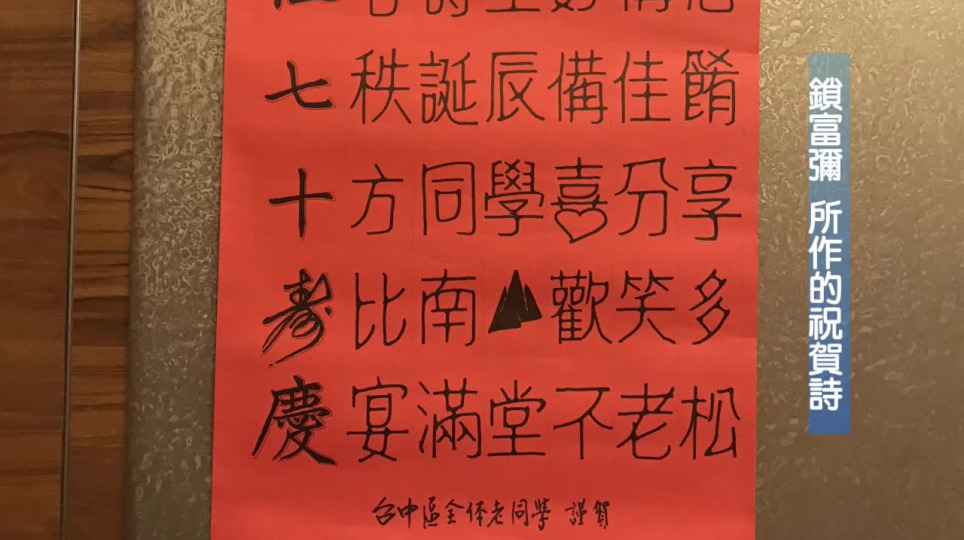 七秩誕辰備佳餚
十方同學喜分享
壽比南歡笑多
慶宴滿堂不老松
台中區全体老同學 謹賀
鎖富彌 所作的祝賀詩